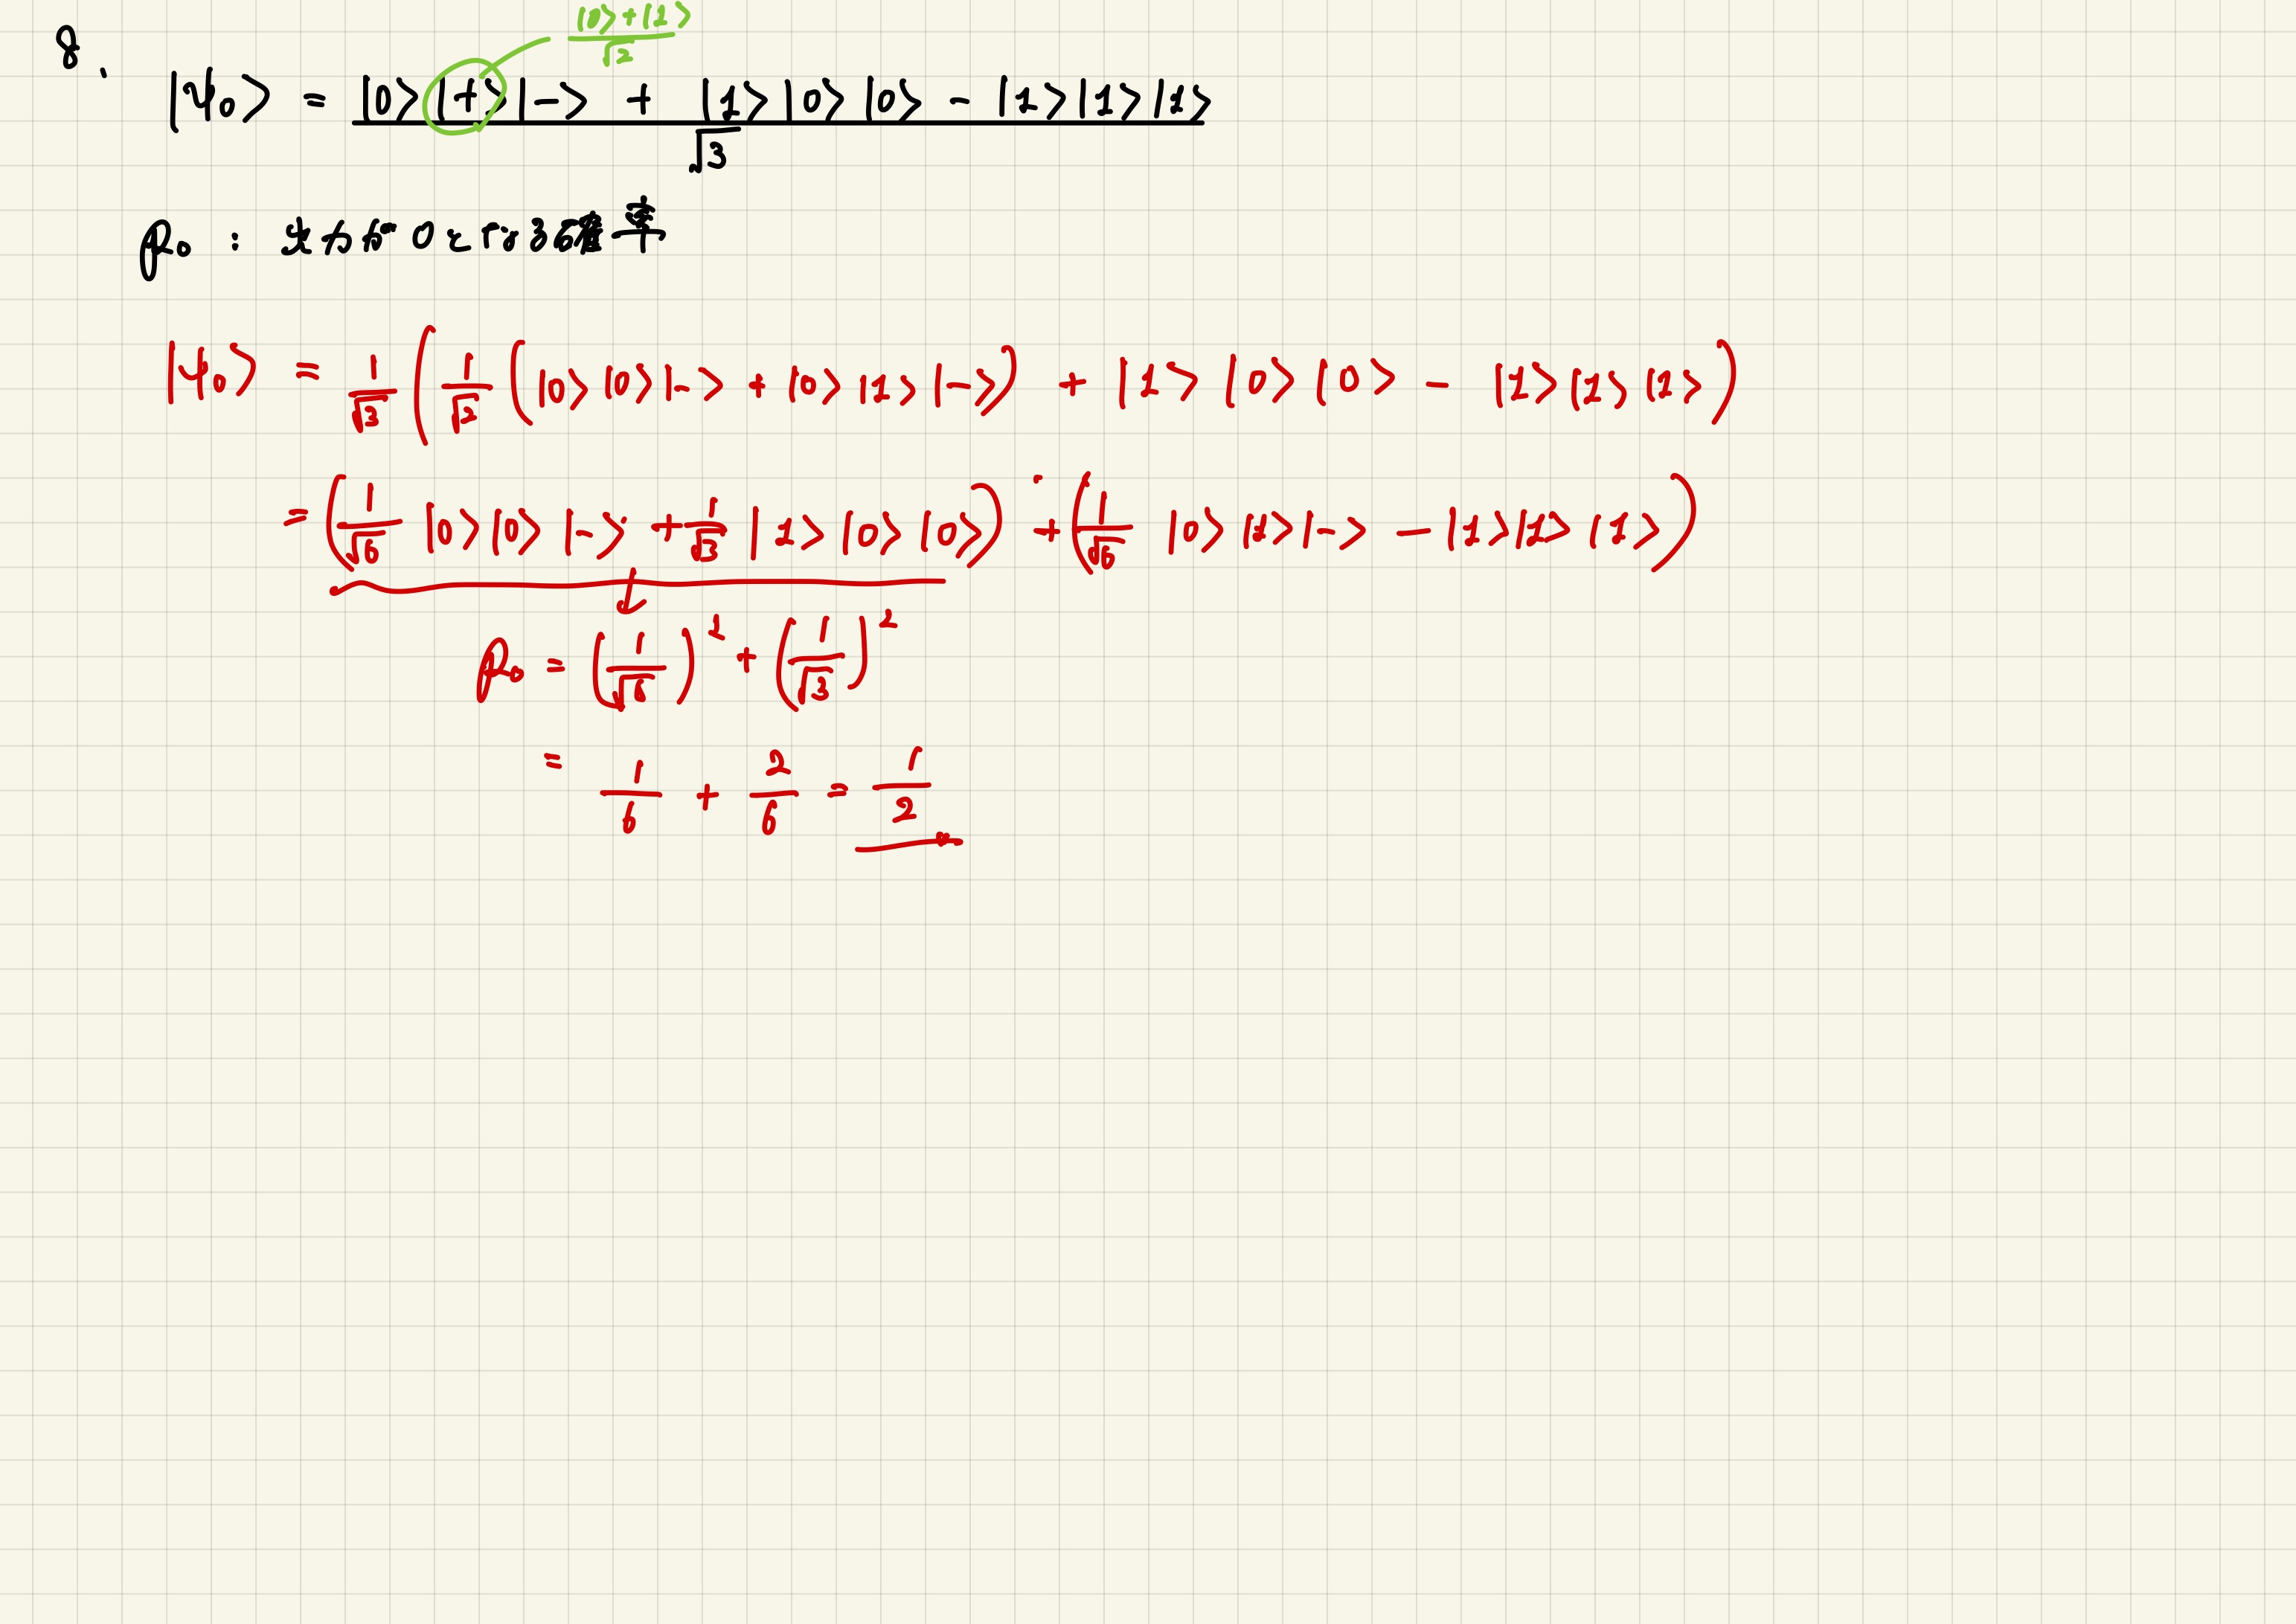 |0>+|1>/√2
8.
|ψ₀> = (|0>|+>|-> + |1>|0>|0> - |1>|1>|1>)/√3
p₀ : 0となる確率
|ψ₀> = 1/√3 (1/√2 (|0>|0>|-> + |0>|1>|->) + |1>|0>|0> - |1>|1>|1>)
= (1/√6 |0>|0>|-> + 1/√3 |1>|0>|0>) + (1/√6 |0>|1>|-> - |1>|1>|1>)
p₀ = (1/√6)² + (1/√3)²
= 1/6 + 2/6 = 1/2